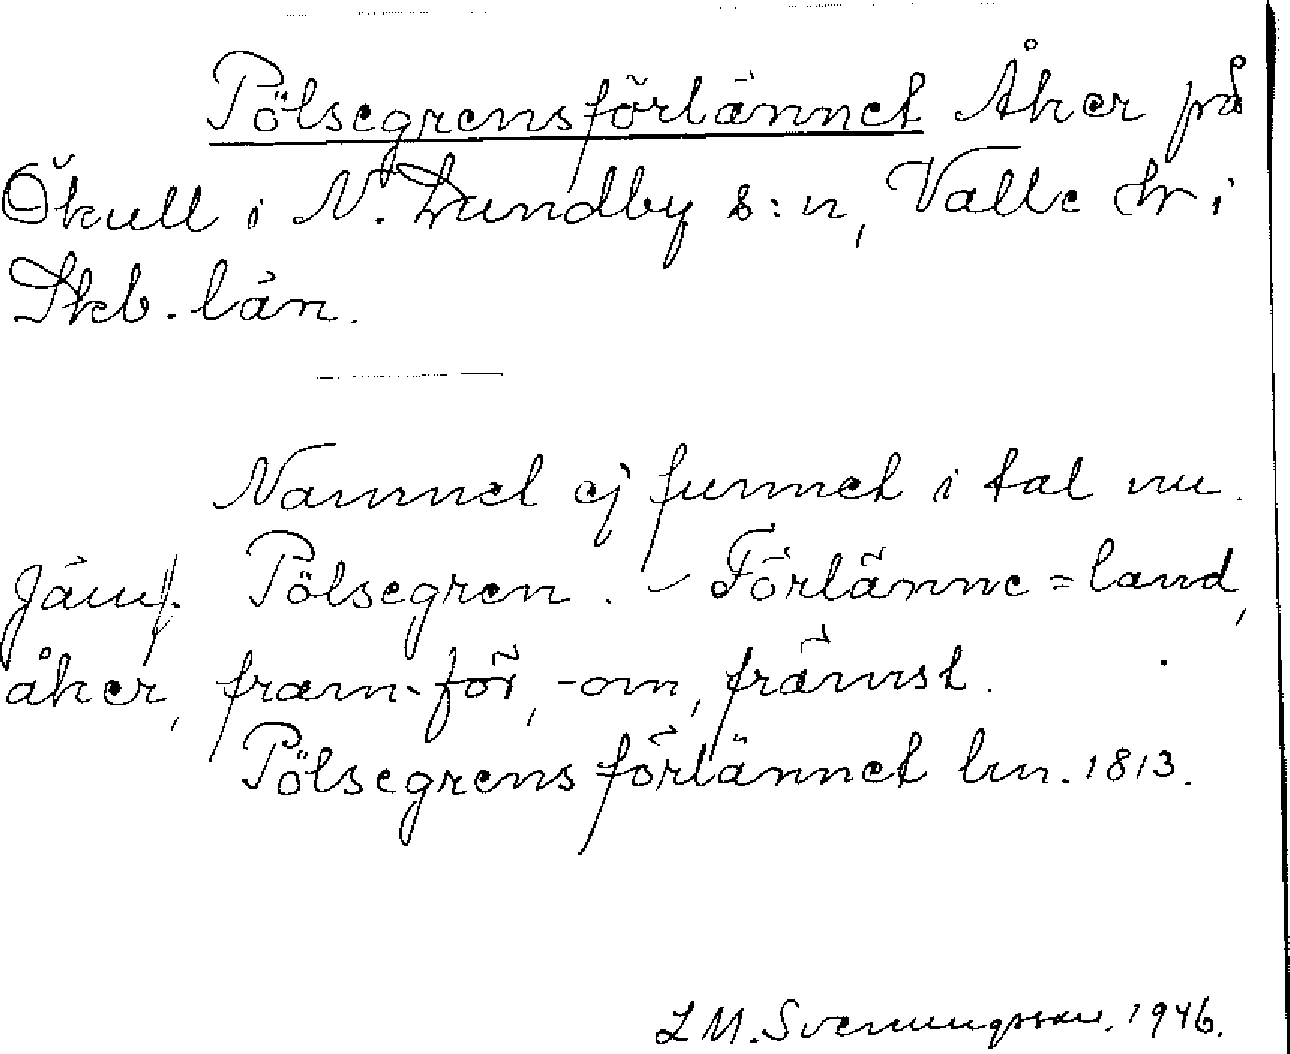 Pölsegrensförlännet Åker på
Ökull i N. Lundby s:n, Valle hr i
Skb. län.
Namnet ej funnet i tal nu.
Jämf. Pölsegren. – Förlänne = land,
åker, fram-för, -om, främst.
Pölsegrensförlännet lm. 1813.
L M. Svenungsson. 1946.